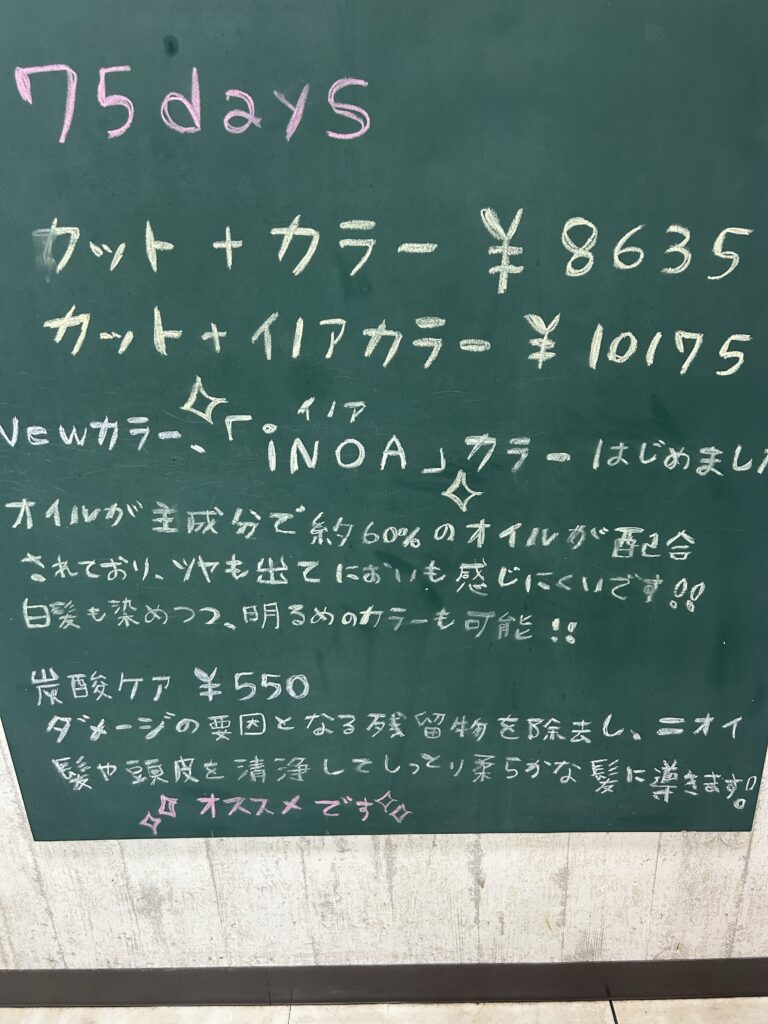 75days
カット + カラー ¥ 8635
カット + イノアカラー ¥ 10175
イノア
Newカラー、「iNOA」カラーはじめました
オイルが主成分で約60%のオイルが配合
されており、ツヤも出てにおいも感じにくいです!!
白髪も染めつつ、明るめのカラーも可能!!
炭酸ケア ¥550
ダメージの要因となる残留物を除去し、ニオイ
髪や頭皮を清浄してしっとり柔らかな髪に導きます!!
オススメです